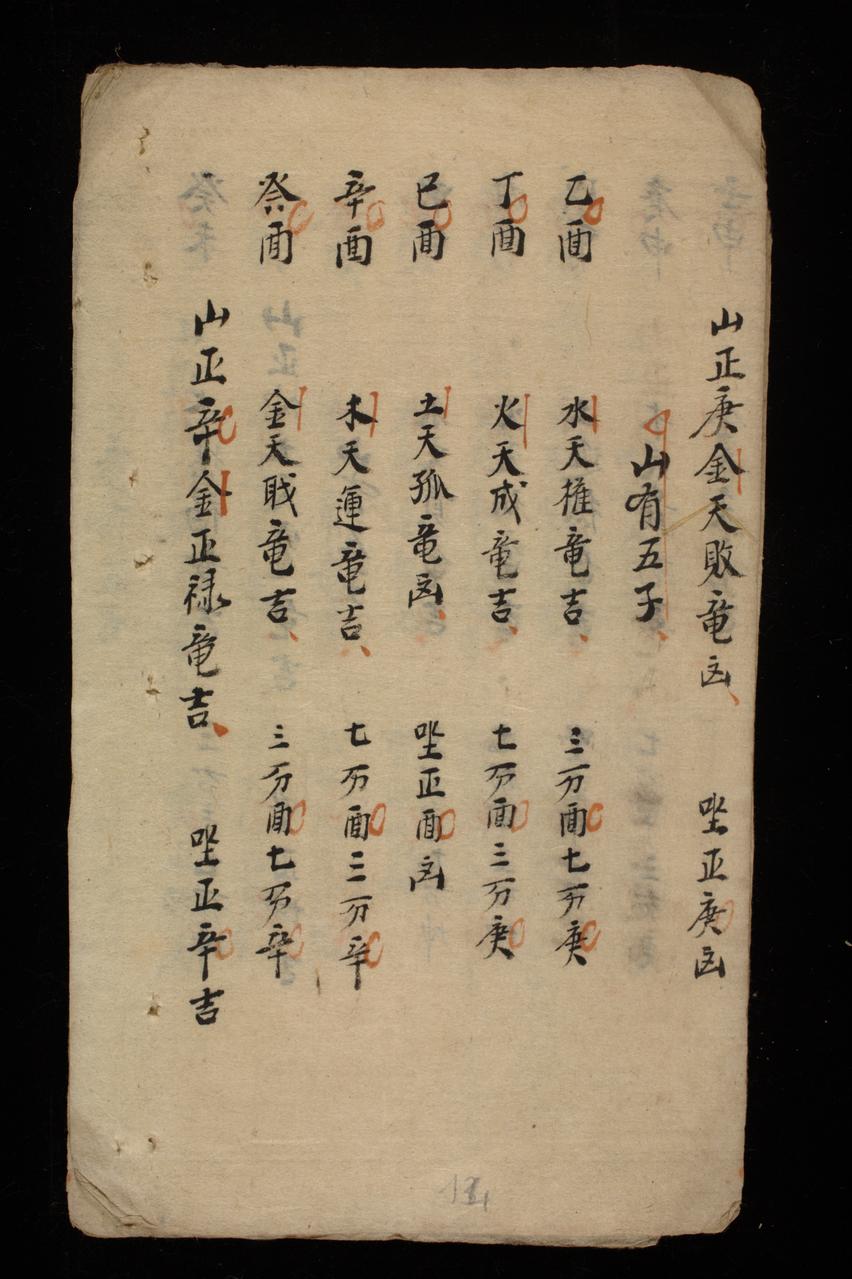 山正庚金天敗竜凶 坐正庚凶
山有五子
乙酉 水天權竜吉 三分酉七分庚
丁酉 火天成竜吉 七分酉三分庚
己酉 土天孤竜凶 坐正酉凶
辛酉 木天運竜吉 七分酉三分辛
癸酉 金天戝竜吉 三分酉七分辛
山正辛金正禄竜吉 坐正辛吉